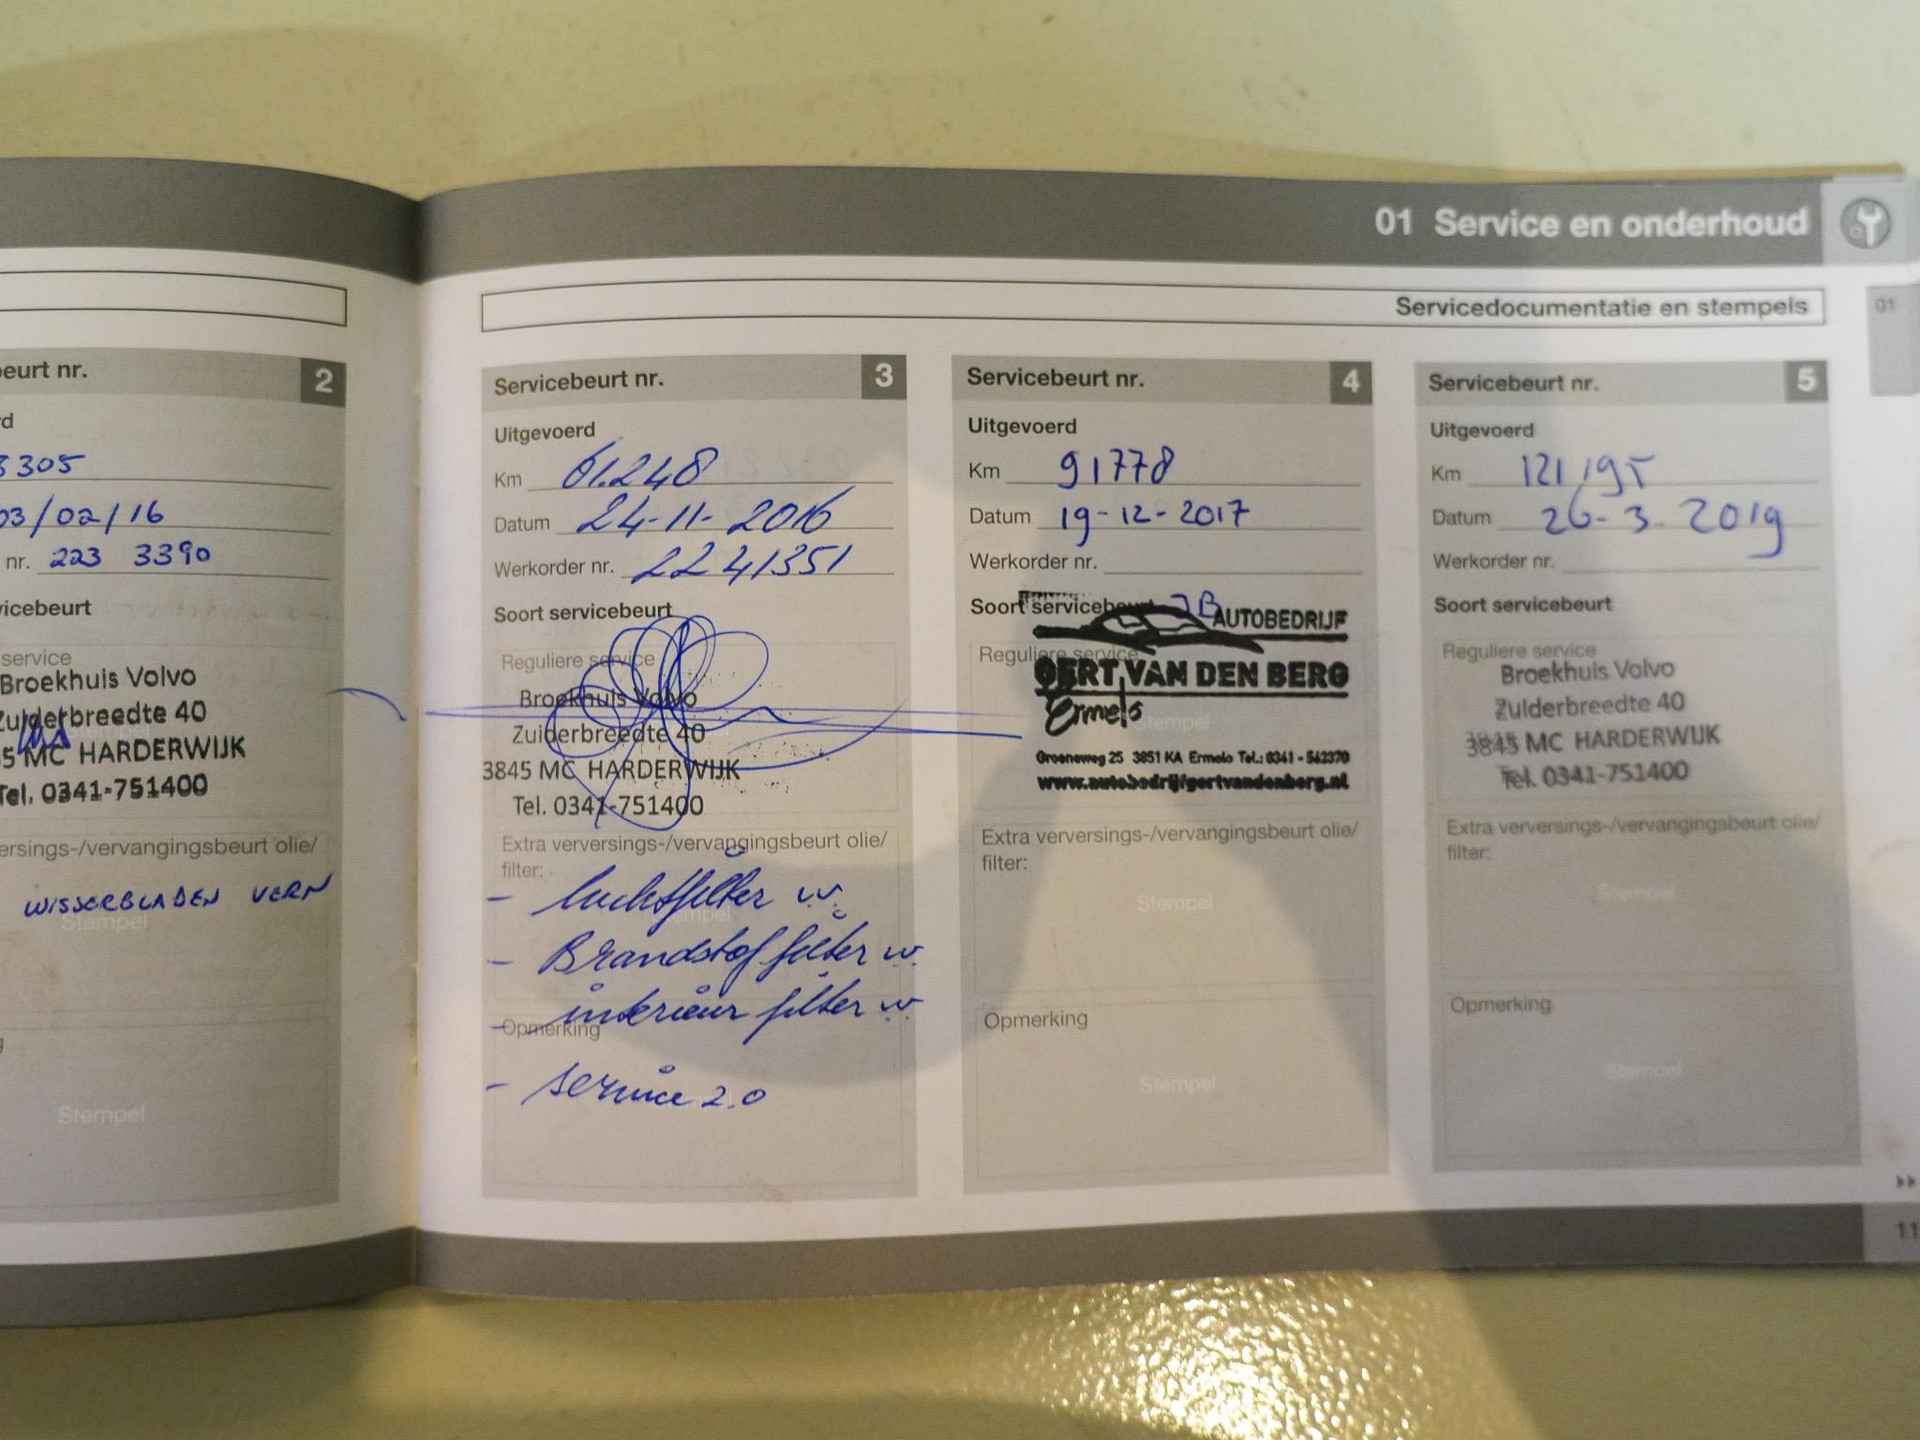 01 Service en onderhoud
Servicedocumentatie en stempels
01
eurt nr. 2
rd
3305
03/02/16
nr. 223 3390
vicebeurt
service
Broekhuis Volvo
Zuiderbreedte 40
5 MC HARDERWIJK
Tel. 0341-751400
ersings-/vervangingsbeurt olie/
WISSERBLADEN VERN
Stempel
Stempel
Servicebeurt nr. 3
Uitgevoerd
Km 61.248
Datum 24-11-2016
Werkorder nr. 2241351
Soort servicebeurt
Reguliere service
Broekhuis Volvo
Zuiderbreedte 40
3845 MC HARDERWIJK
Tel. 0341-751400
Extra verversings-/vervangingsbeurt olie/
filter:
- luchtfilter v.v.
- Brandstof filter v.v.
- interieur filter v.v.
Opmerking
- service 2.0
Servicebeurt nr. 4
Uitgevoerd
Km 91778
Datum 19-12-2017
Werkorder nr.
Soort servicebeurt
AUTOBEDRIJF
Reguliere service
GERT VAN DEN BERG
Ermelo
Stempel
Groeneweg 25 3851 KA Ermelo Tel.: 0341 - 562370
www.autobedrijfgertvandenberg.nl
Extra verversings-/vervangingsbeurt olie/
filter:
Stempel
Opmerking
Stempel
Servicebeurt nr. 5
Uitgevoerd
Km 121195
Datum 26-3-2019
Werkorder nr.
Soort servicebeurt
Reguliere service
Broekhuis Volvo
Zuiderbreedte 40
3845 MC HARDERWIJK
Tel. 0341-751400
Extra verversings-/vervangingsbeurt olie/
filter:
Stempel
Opmerking
Stempel
11